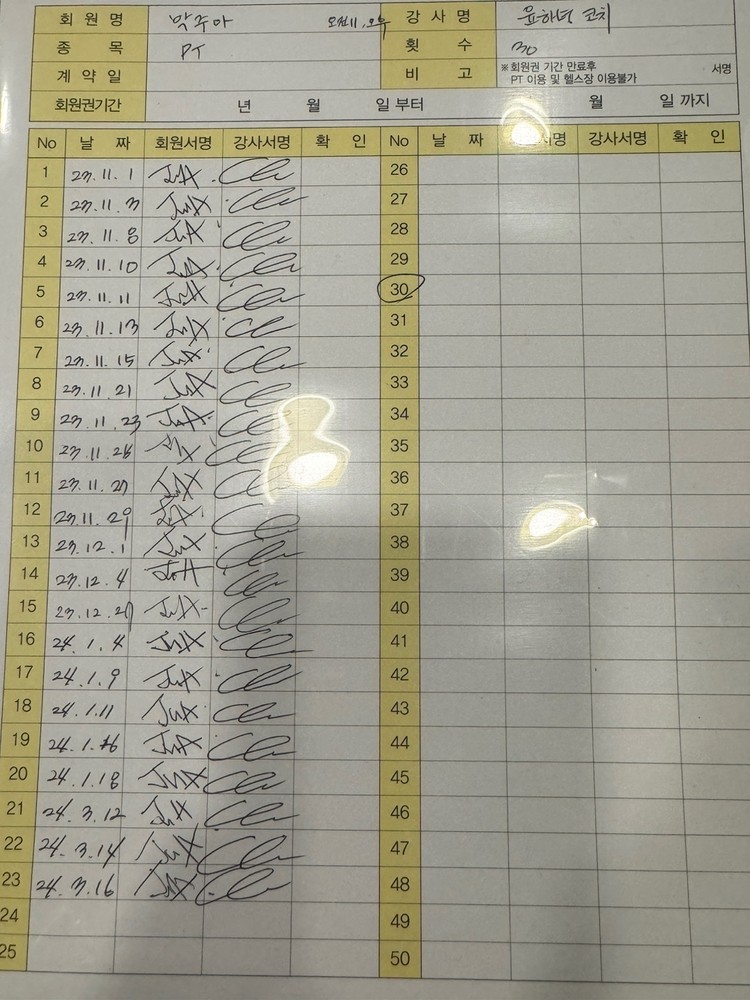 회원명 박주아 오전11, 오후 강사명 윤하녕 코치
종목 PT 횟수 30
계약일 비고 ※회원권 기간 만료후 PT 이용 및 헬스장 이용불가 서명
회원권기간 년 월 일 부터 월 일 까지
No 날짜 회원서명 강사서명 확인 No 날짜 서명 강사서명 확인
1 23.11.1 JuA 26
2 23.11.3 JuA 27
3 23.11.8 JuA 28
4 23.11.10 JuA 29
5 23.11.11 JuA 30
6 23.11.13 JuA 31
7 23.11.15 JuA 32
8 23.11.21 JuA 33
9 23.11.23 JuA 34
10 23.11.26 JuA 35
11 23.11.27 JuA 36
12 23.11.29 JuA 37
13 23.12.1 JuA 38
14 23.12.4 JuA 39
15 JuA 40
16 24.1.4 JuA 41
17 24.1.9 JuA 42
18 24.1.11 JuA 43
19 24.1.16 JuA 44
20 24.1.18 JuA 45
21 24.3.12 JuA 46
22 24.3.14 JuA 47
23 24.3.16 JuA 48
24 49
25 50